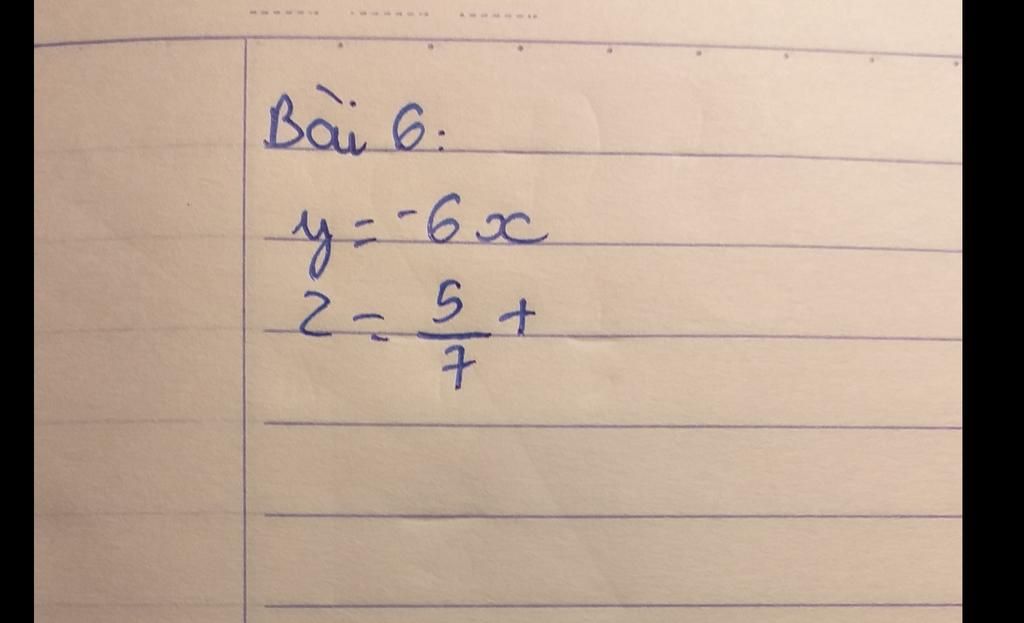 Bài 6:
y = -6x
z = 5/7 t